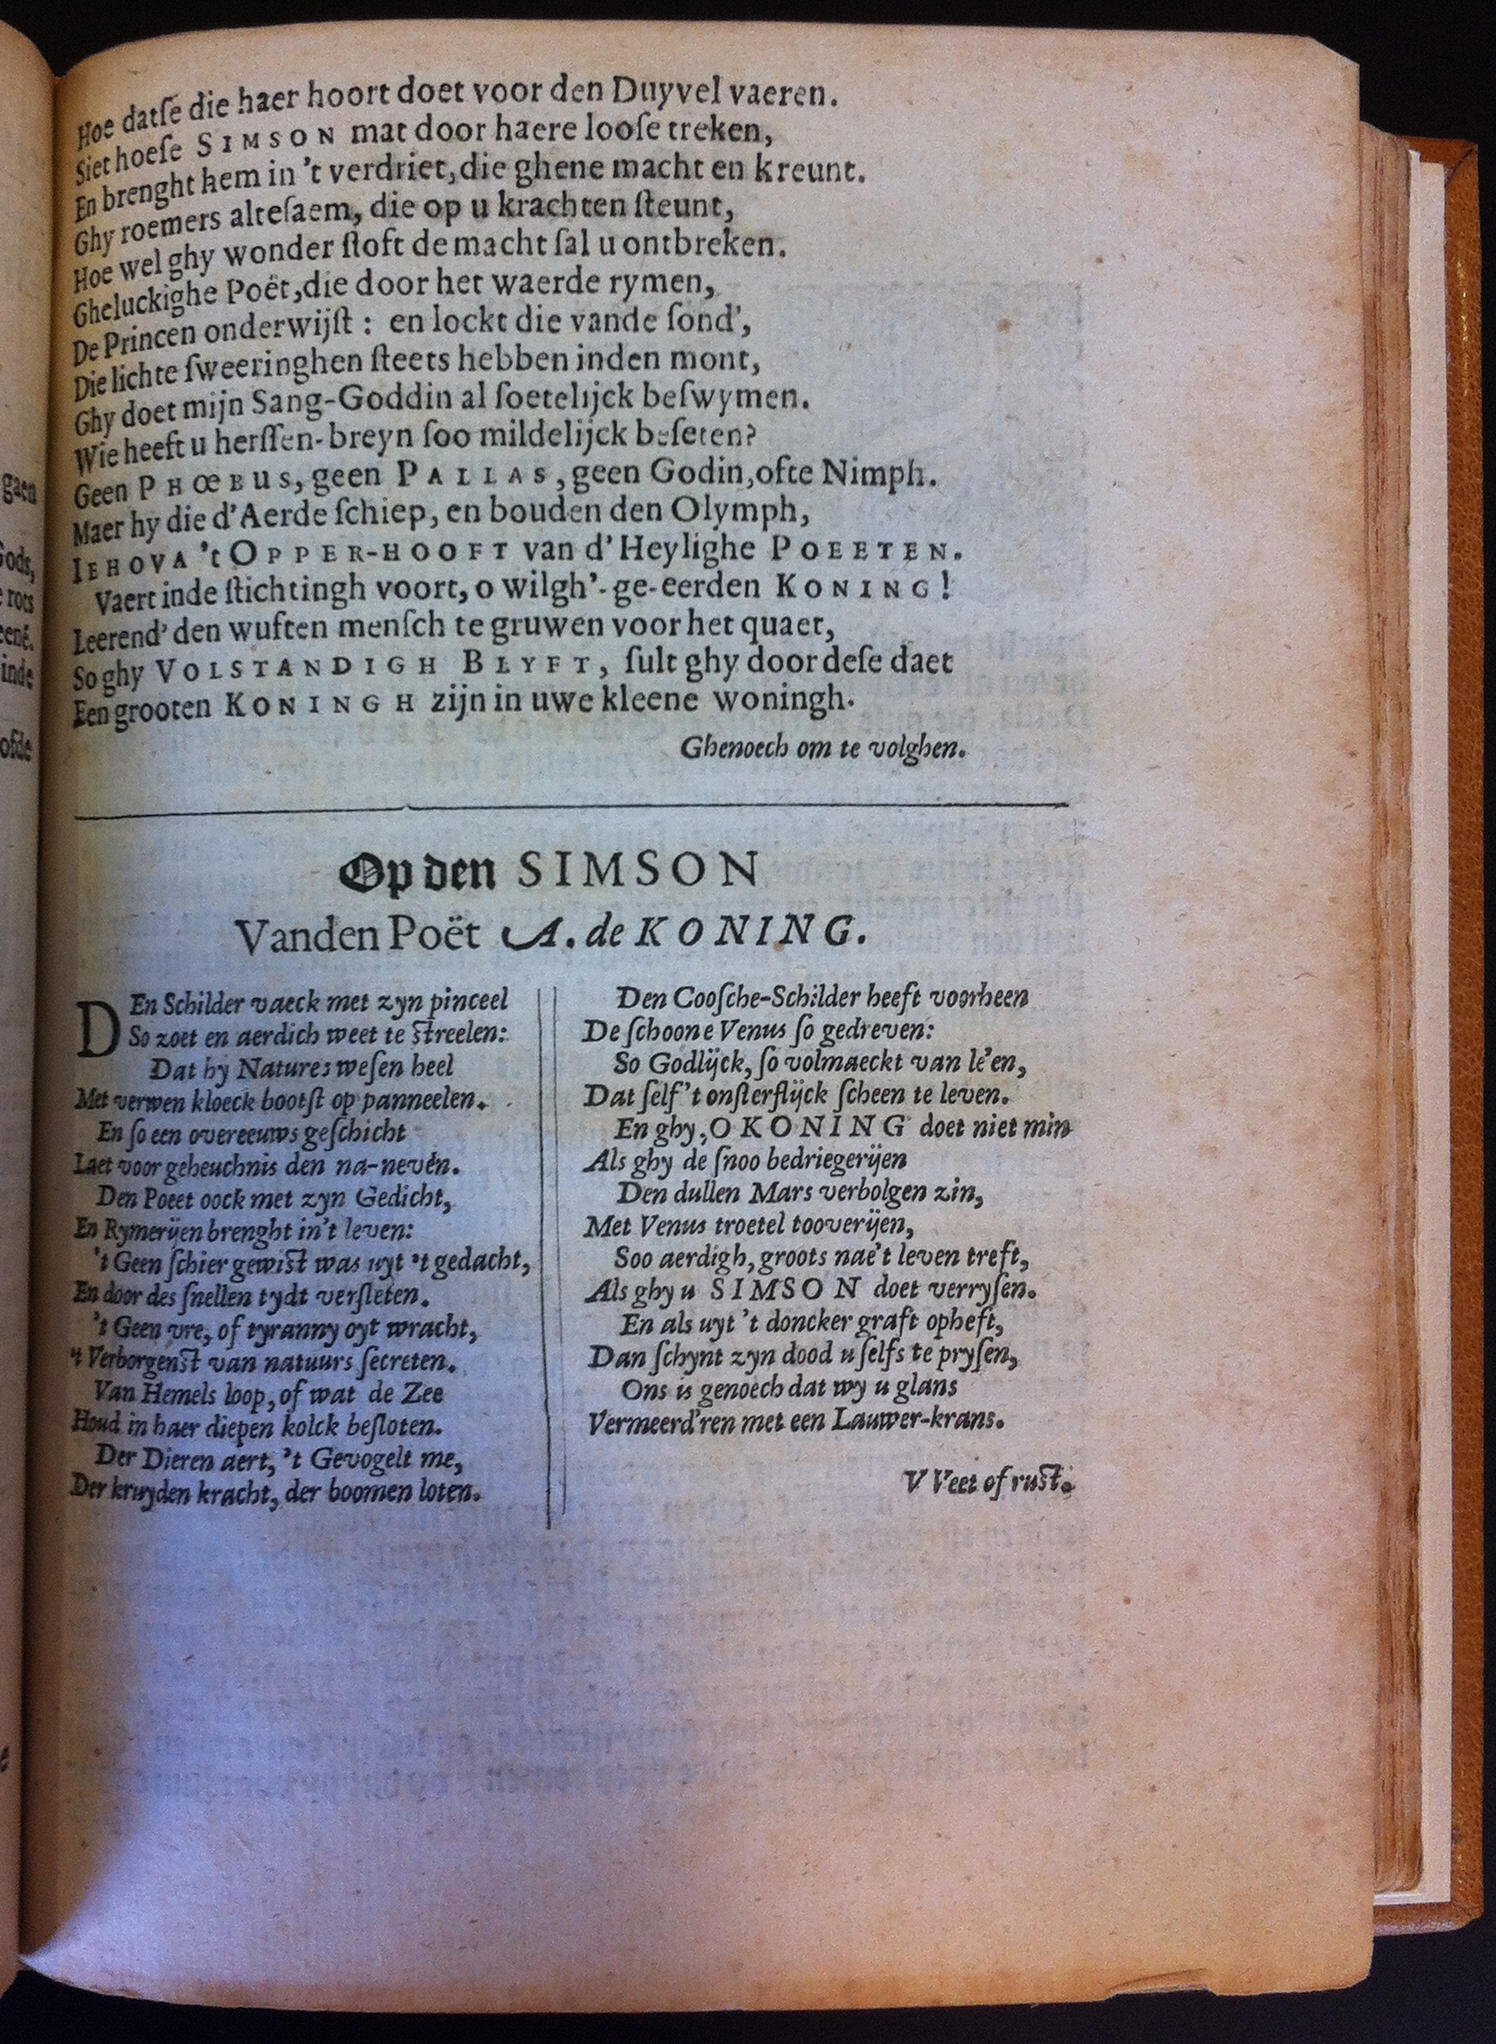 Hoe datſe die haer hoort doet voor den Duyvel vaeren.
Siet hoeſe SIMSON mat door haere looſe treken,
En brenght hem in 't verdriet, die ghene macht en kreunt.
Ghy roemers alteſaem, die op u krachten ſteunt,
Hoe wel ghy wonder ſtoft de macht ſal u ontbreken.
Gheluckighe Poët, die door het waerde rymen,
De Princen onderwijſt : en lockt die vande ſond',
Die lichte ſweeringhen ſteets hebben inden mont,
Ghy doet mijn Sang-Goddin al ſoetelijck beſwymen.
Wie heeft u herſſen-breyn ſoo mildelijck beſeten?
Geen PHŒBUS, geen PALLAS, geen Godin, ofte Nimph.
Maer hy die d'Aerde ſchiep, en bouden den Olymph,
IEHOVA 't OPPER-HOOFT van d'Heylighe POEETEN.
Vaert inde ſtichtingh voort, o wilgh'-ge-eerden KONING!
Leerend' den wuften menſch te gruwen voor het quaet,
So ghy VOLSTANDIGH BLYFT, ſult ghy door deſe daet
Een grooten KONINGH zijn in uwe kleene woningh.
Ghenoech om te volghen.
Op den SIMSON
Vanden Poët A. de KONING.
DEn Schilder vaeck met zyn pinceel
So zoet en aerdich weet te ſtreelen:
Dat hy Natures weſen heel
Met verwen kloeck bootſt op panneelen.
En ſo een overeeuws geſchicht
Laet voor geheuchnis den na-nevén.
Den Poeet oock met zyn Gedicht,
En Rymerijen brenght in't leven:
't Geen ſchier gewiſt was uyt 't gedacht,
En door des ſnellen tydt verſleten.
't Geen vre, of tyranny oyt wracht,
't Verborgenſt van natuurs ſecreten.
Van Hemels loop, of wat de Zee
Houd in haer diepen kolck beſloten.
Der Dieren aert, 't Gevogelt me,
Der kruyden kracht, der boomen loten.
Den Cooſche-Schilder heeft voorheen
De ſchoone Venus ſo gedreven:
So Godlijck, ſo volmaeckt van le'en,
Dat ſelf 't onſterflijck ſcheen te leven.
En ghy, O KONING doet niet min
Als ghy de ſnoo bedriegerijen
Den dullen Mars verbolgen zin,
Met Venus troetel tooverijen,
Soo aerdigh, groots nae't leven treft,
Als ghy u SIMSON doet verryſen.
En als uyt 't doncker graft opheft,
Dan ſchynt zyn dood u ſelfs te pryſen,
Ons is genoech dat wy u glans
Vermeerd'ren met een Lauwer-krans.
V Veet of ruſt.
gaen
Gods,
rots
inde